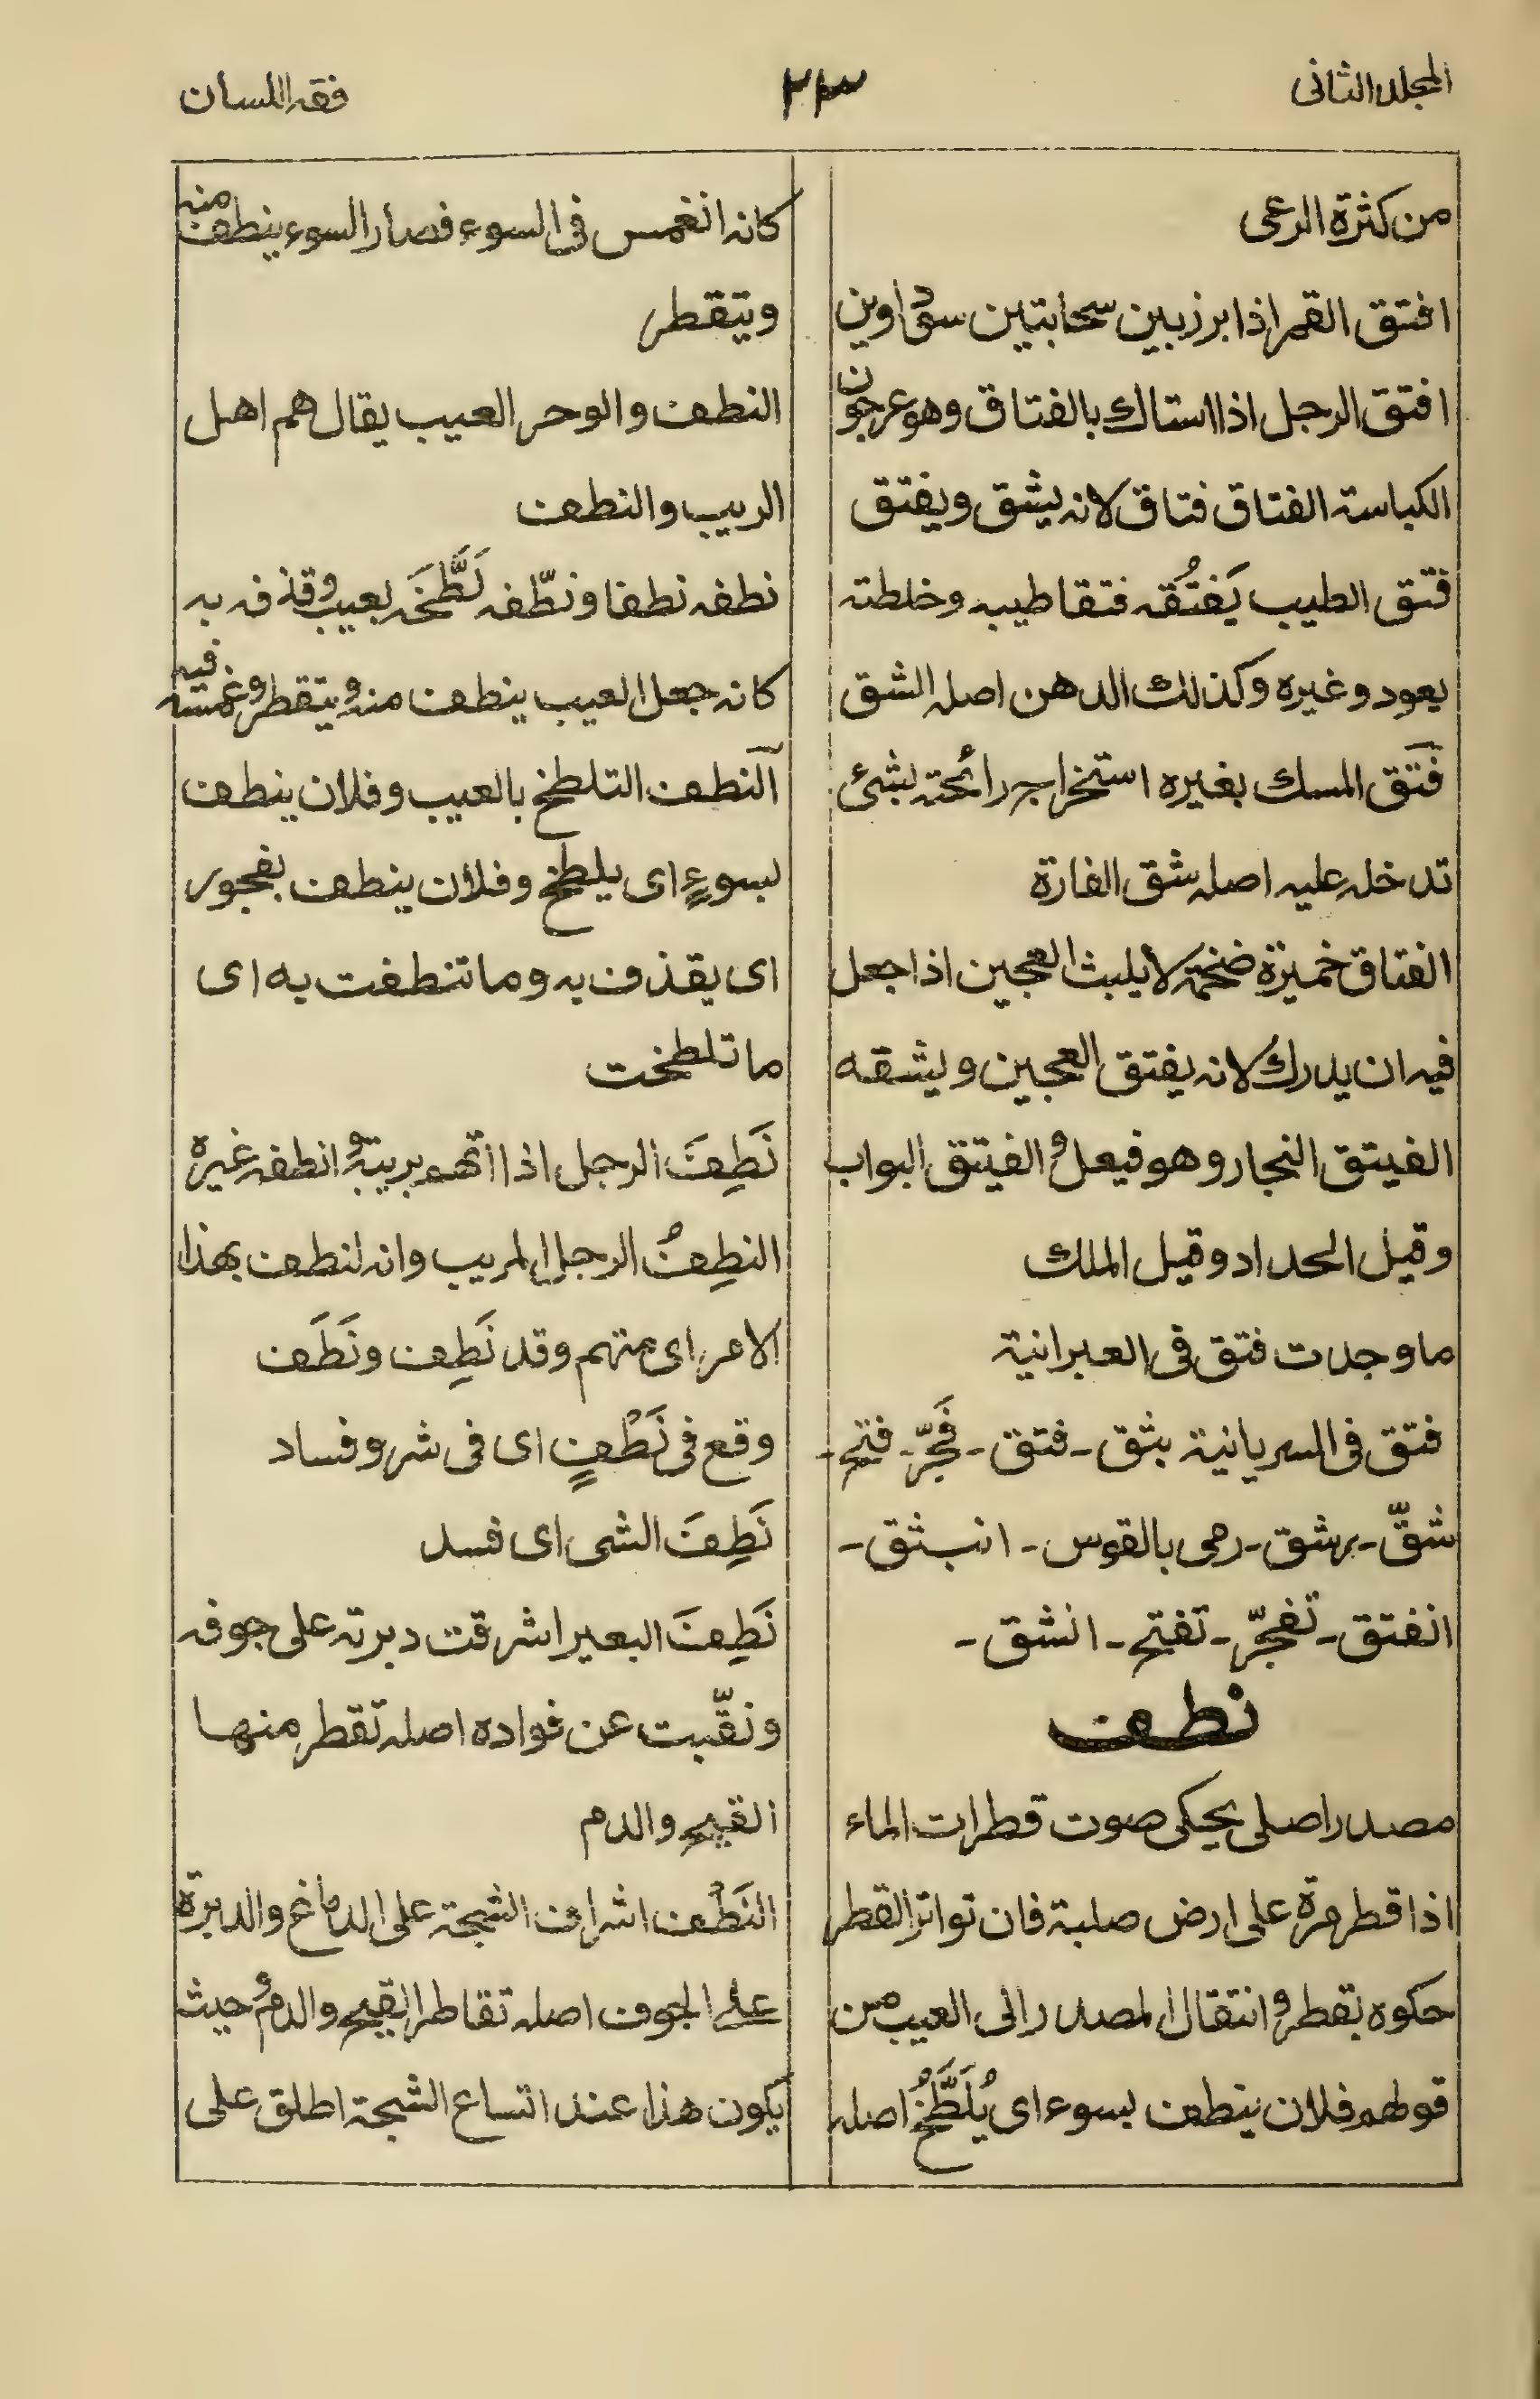 المجلد الثانى
٢٣
فقه اللسان
من كثرة الرعى
افتق القمر اذا برز بين سحابتين سوداوين
افتق الرجل اذا استاك بالفتاق وهو عرجون
الكباسة الفتاق فتاق لانه يشق ويفتق
فتق الطيب يَفتُقه فتقا طيبه وخلطته
بعود وغيره وكذلك الدهن اصله الشق
فَتَق المسك بغيره استخراج رائحته بشئ
تدخله عليه اصله شق الفارة
الفتاق خميرة ضخمة لا يلبث العجين اذا جعل
فيه ان يدرك لانه يفتق العجين ويشقه
الفيتق النجار وهو فيعل و الفيتق البواب
وقيل الحداد وقيل الملك
ما وجدت فتق فى العبرانية
فتق فى السريانية بثق ـ فتق ـ فَجّر ـ فتح ـ
شقّ ـ برشق ـ رمى بالقوس ـ انبثق ـ
انفتق ـ تفجّر ـ تفتح ـ انشق ـ
نطف
مصدر اصلى يحكى صوت قطرات الماء
اذا قطر مرة على ارض صلبة فان تواتر القطر
حكوه بقطر و انتقال المصدر الى العيب من
قولهم فلان ينطف بسوء اى يُلَطَّخُ اصله
كانه انغمس فى السوء فصار السوء ينطف منه
ويتقطر
النطف والوحر العيب يقال هم اهل
الريب والنطف
نطفه نطفا ونطّفه لَطَّخَه بعيب و قذفه به
كانه جعل العيب ينطف منه و يتقطر و غمسه فيه
النطف التلطخ بالعيب وفلان ينطف
بسوءٍ اى يلطخ وفلان ينطف بفجور
اى يقذف به وما تنطفت به اى
ما تلطخت
نَطِفَ الرجل اذا اتهم بريبة و انطفه غيره
النطِفُ الرجل المريب وانه لنطف بهذا
الامر اى متهم وقد نَطِف ونَطَف
وقع فى نَطْفٍ اى فى شر وفساد
نَطِفَ الشى اى فسد
نَطِفَ البعير اشرقت دبرته على جوفه
ونقّبت عن فواده اصله تقطر منها
القيح والدم
النَطْف اشراف الشجة على الدماغ والدبرة
على الجوف اصله تقاطر القيح والدم و حيث
يكون هذا عند اتساع الشجة اطلق على